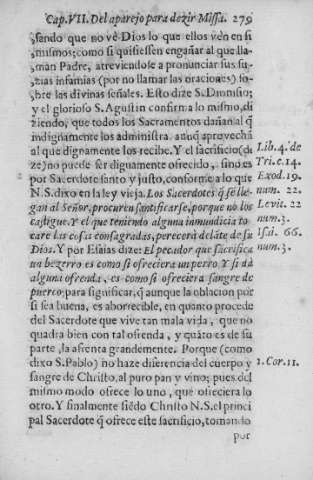 Cap. VII. Del aparejo para dezir Missa. 279
sando que no vè Dios lo que ellos vén en si
mismos; como si quisiessen engañar al que lla-
man Padre, atreviendose a pronunciar sus su-
zias infamias (por no llamar las oraciones) so-
bre las divinas señales. Esto dize S. Dionisio;
y el glorioso S. Agustin confirma lo mismo, di
ziendo, que todos los Sacramentos dañan al q̃
indignamente los administra, aunq̃ aprovechã
al que dignamente los recibe. Y el sacrificio (di
ze) no puede ser diguamente ofrecido, sino es
por Sacerdote santo y justo, conforme a lo que
N.S. dixo en la ley vieja. Los Sacerdotes q̃ se lle-
gan al Señor, procuren santificarse, porque no los
castigue. Y el que teniendo alguna inmundicia to
care las cosas consagradas, perecerá delãte de su
Dios. Y por Esaias dize: El pecador que sacrifica
un bezerro es como si ofreciera un perro. Y si dá
alguna ofrenda, es como si ofreciera sangre de
puerco; para significar, q̃ aunque la oblacion por
si sea buena, es aborrecible, en quanto procede
del Sacerdote que vive tan mala vida, que no
quadra bien con tal ofrenda, y quãto es de su
parte, la afrenta grandemente. Porque (como
dixo S. Pablo) no haze diferencia del cuerpo y
sangre de Christo, al puro pan y vino; pues del
mismo modo ofrece lo uno, que ofreciera lo
otro. Y finalmente siẽdo Christo N.S. el princi
pal Sacerdote q̃ ofrece este sacrificio, tomando
por
Lib. 4. de
Tri. c. 14.
Exod. 19.
num. 22.
Levit. 22
num. 3.
Isai. 66.
num. 3.
1. Cor. 11.